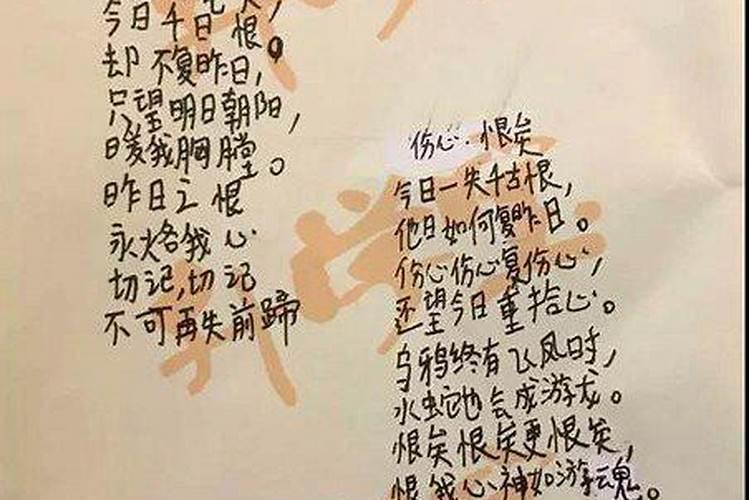 今日千日恨。
却不复昨日,
只望明日朝阳,
暖我胸膛。
昨日之恨
永烙我心
切记,切记
不可再失前蹄
伤心·恨矣
今日一失千古恨,
他日如何复昨日。
伤心伤心复伤心,
还望今日重拾心。
乌鸦终有飞凤时,
水蛇也会成游龙。
恨矣恨矣更恨矣,
恨我心神如游魂。